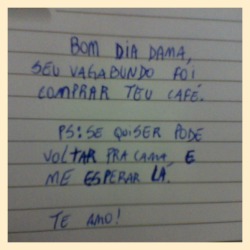 BOM DIA DAMA,
SEU VAGABUNDO FOI
COMPRAR TEU CAFÉ.
PS: SE QUISER PODE
VOLTAR PRA CAMA, E
ME ESPERAR LÁ.
TE AMO!